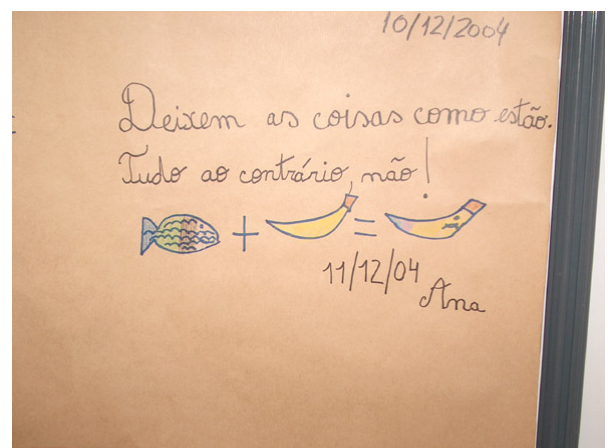 10/12/2004
Deixem as coisas como estão.
Tudo ao contrário, não!
+ =
11/12/04
Ana